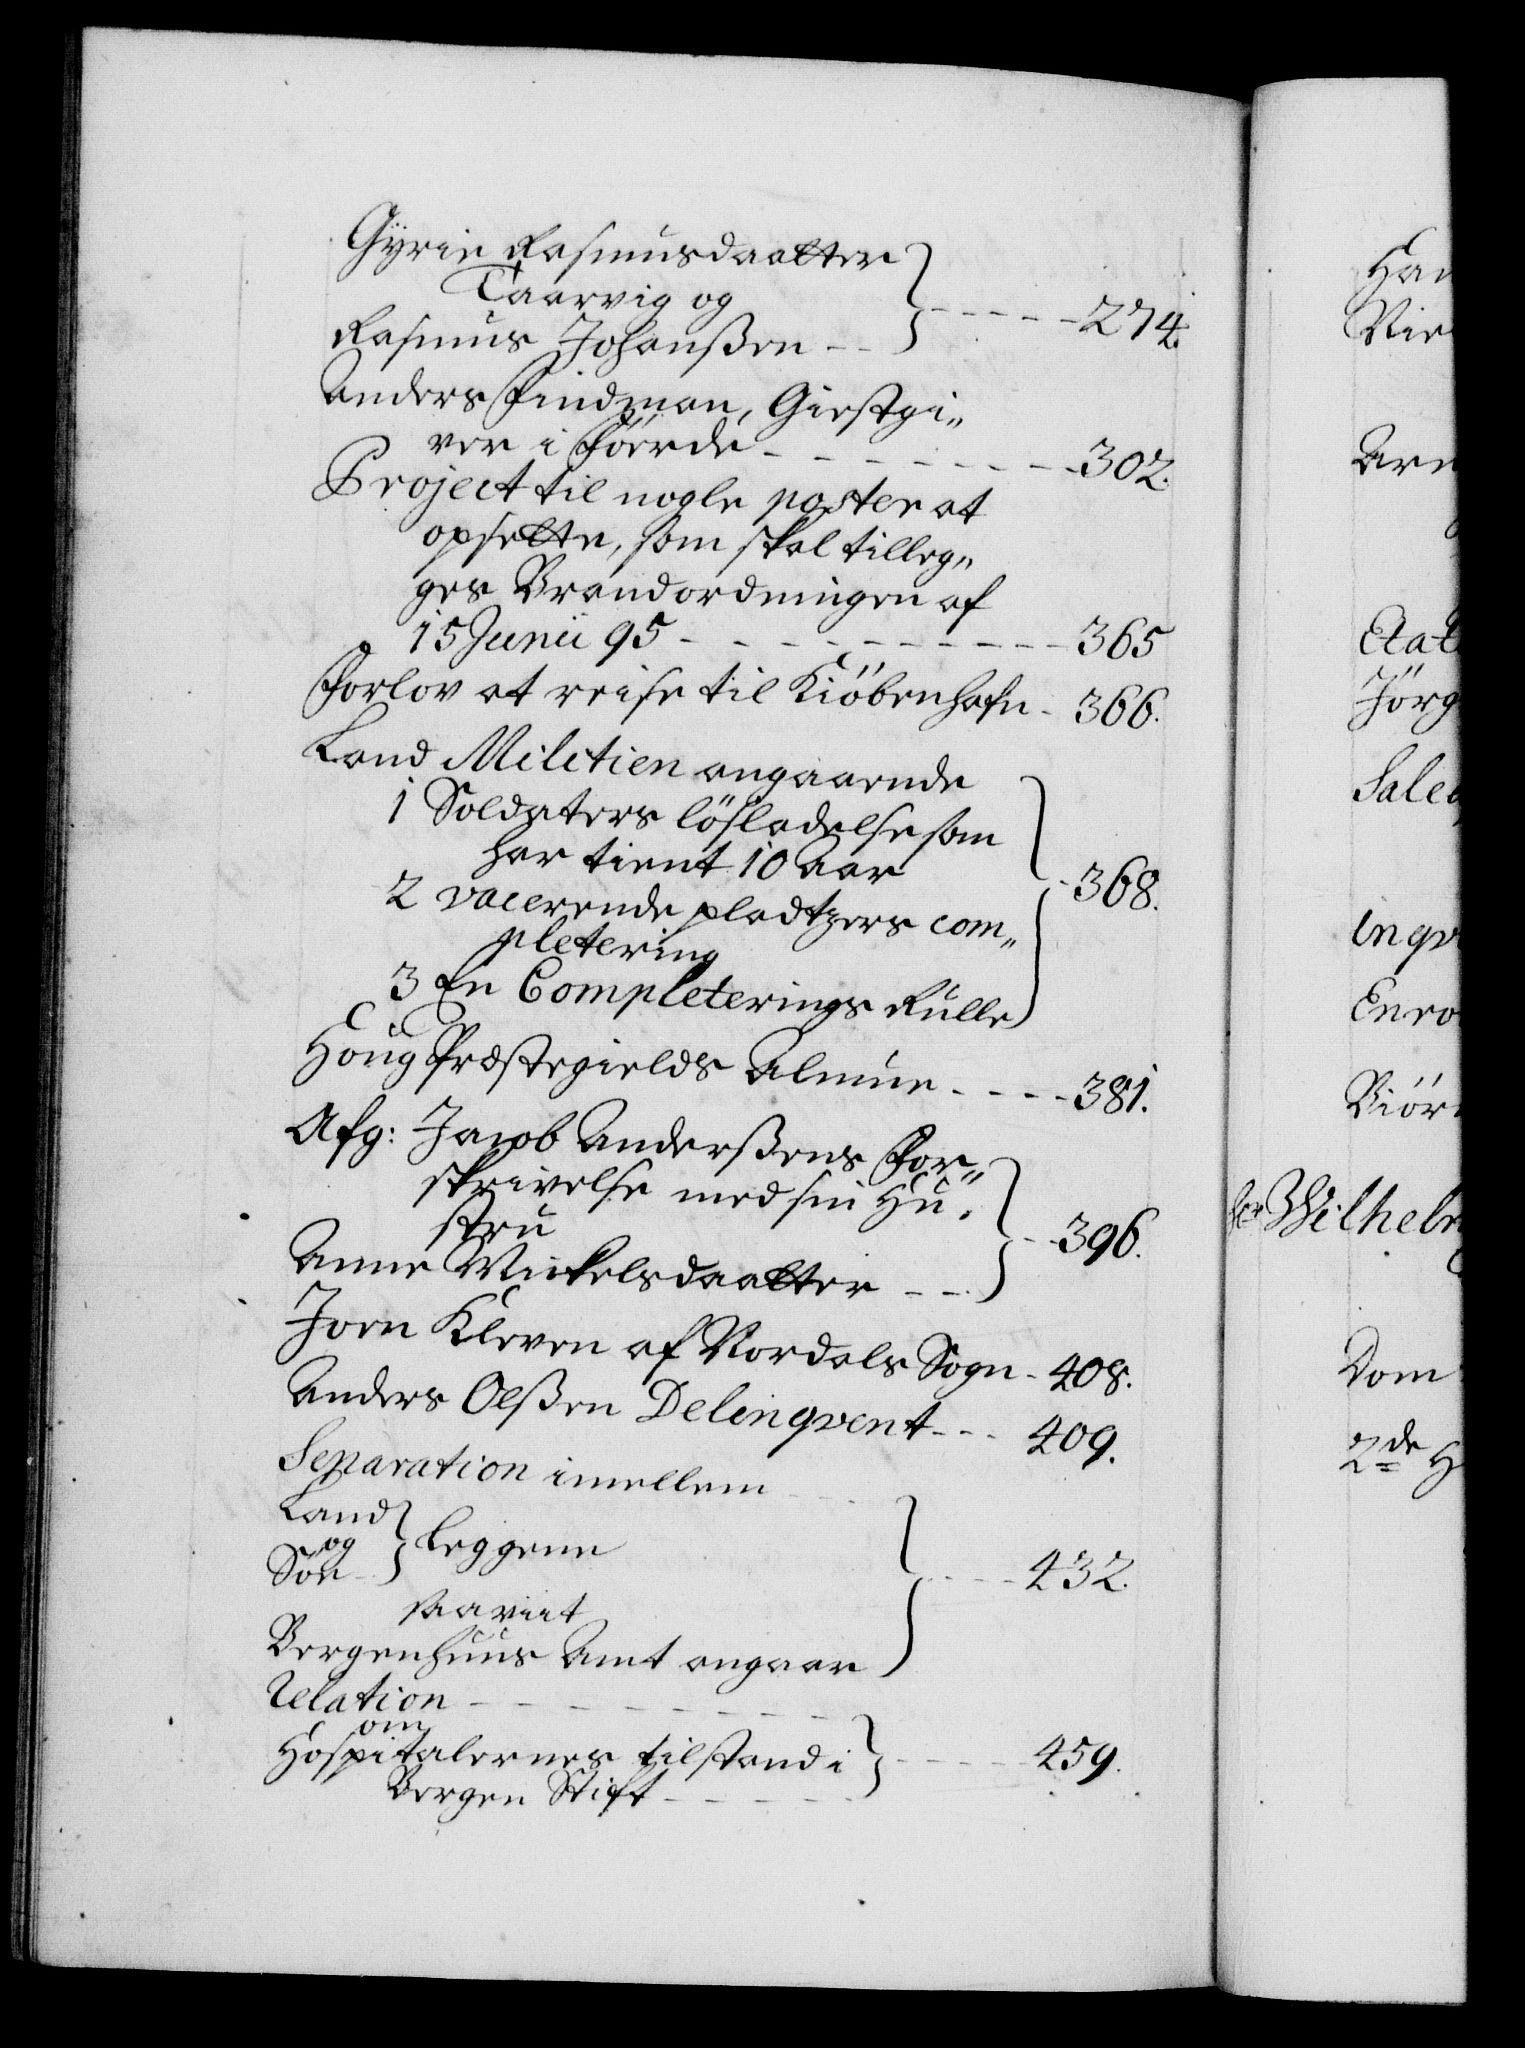 Gyrie Rasmusdaatter
Taarvig og
Rasmus Johanßen - - } - - - - - 274.
Anders Findman, Giestgi„
ver i Förde - - - - - - - - 302.
Project til nogle poster at
opsette, som skal tilleg„
ges Brandordningen af
15 Junii 95 - - - - - - - - - 365
Forlov at reise til Kiöbenhafn - 366.
Land Militien angaaende
1 Soldaters löfladelse som
har tient 10 Aar
2 vacerende pladtzers com„
pletering
3 En Completerings Rulle } - 368.
Houg Præstegields Almue - - - - 381.
Afg: Jacob Anderßens For„
skrivelse med sin Hu„
stru
Anne Mickelsdaatter - - } - - 396.
Joen Kleven af Nordals Sogn - 408.
Anders Olßen Delinqvent - - - 409.
Separation imellem
Land
og } Leggene
Söe
saavit
Bergenhuus Amt angaar } - - - - 432.
Relation - - - - - - - -
om
Hospitalernes tilstand i } - - - - 459.
Bergen Stift - - - - -
Han
Nie
Arn
Aat
Jörg
Sale
Inqv
Enro
Biör
Wilhelm
Dom
2de H